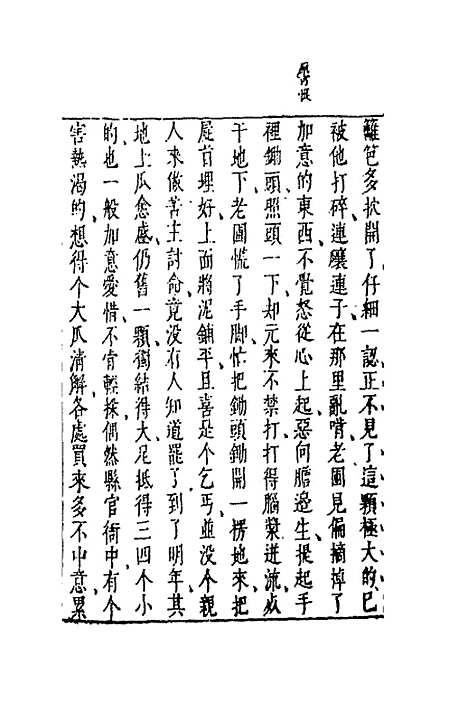 籬笆多扒開了仔細一認正不見了這顆極大的已
被他打碎連瓤連子在那里亂啃老圃見偏摘掉了
加意的東西不覺怒從心上起惡向膽邊生提起手
裡鋤頭照頭一下却元來不禁打打得腦漿迸流死
于地下老圃慌了手脚忙把鋤頭鋤開一楞地來把
屍首埋好上面將泥鋪平且喜是个乞丐並没个親
人來做苦主討命竟没有人知道罷了到了明年其
地上瓜愈盛仍舊一顆獨結得大足抵得三四个小
的也一般加意愛惜不肯輕採偶然縣官衙中有个
害熱渴的想得个大瓜清解各處買來多不中意累